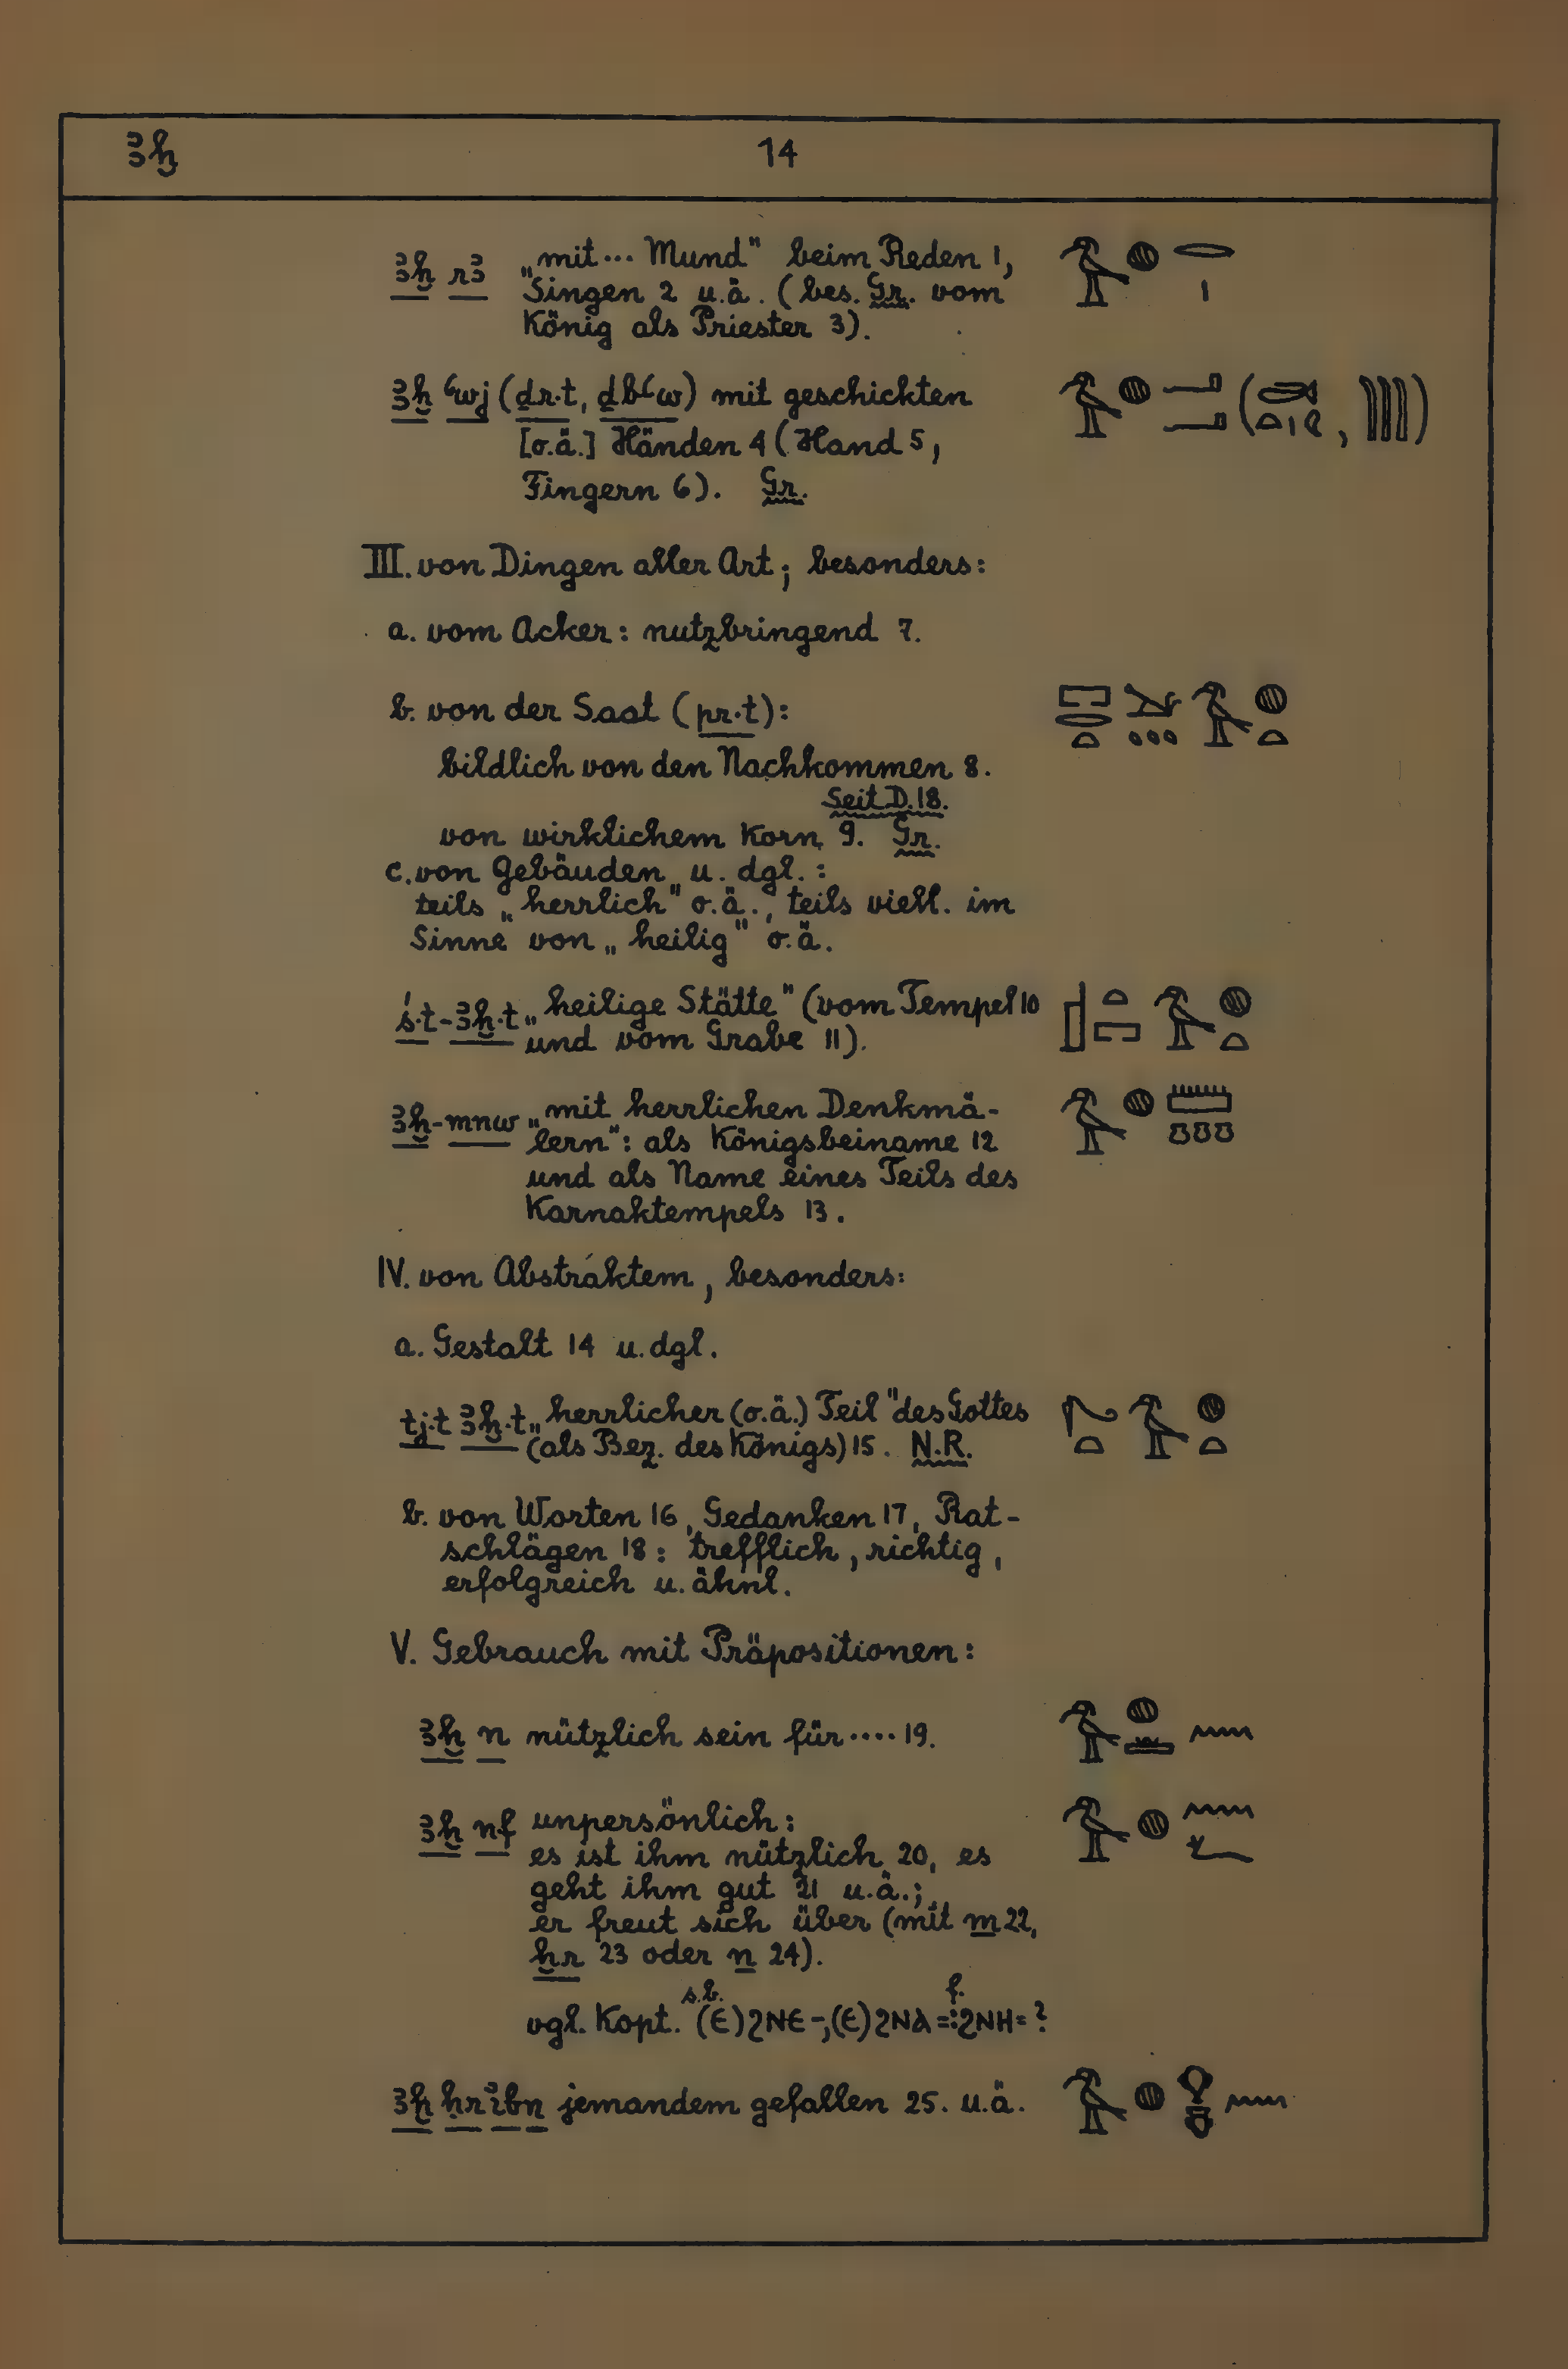 ꜣḫ 14
ꜣḫ rꜣ „mit ... Mund" beim Reden 1, 𓅜𓐍𓂋𓏤
Singen 2 u.ä. (bes. Gr. vom
König als Priester 3).
ꜣḫ ꜥwj (ḏr.t, ḏbꜥw) mit geschickten 𓅜𓐍𓂝𓂝
[o.ä.] Händen 4 (Hand 5,
Fingern 6). Gr.
III. von Dingen aller Art; besonders:
a. vom Acker: nutzbringend 7.
b. von der Saat (pr.t): 𓉐𓂋𓏏𓍁𓅜𓐍𓏏
bildlich von den Nachkommen 8.
Seit D. 18.
von wirklichem Korn 9. Gr.
c. von Gebäuden u. dgl.:
teils „herrlich" o.ä., teils viell. im
Sinne von „heilig" o.ä.
ś.t-ꜣḫ.t „heilige Stätte" (vom Tempel 10 𓊨𓏏𓉐𓅜𓐍𓏏
und vom Grabe 11).
ꜣḫ-mnw „mit herrlichen Denkmä- 𓅜𓐍𓏠𓏌𓏌𓏌
lern": als Königsbeiname 12
und als Name eines Teils des
Karnaktempels 13.
IV. von Abstraktem, besonders:
a. Gestalt 14 u. dgl.
tj.t ꜣḫ.t „herrlicher (o.ä.) Teil" des Gottes 𓏏𓅜𓐍𓏏
(als Bez. des Königs) 15. N.R.
b. von Worten 16, Gedanken 17, Rat-
schlägen 18: trefflich, richtig,
erfolgreich u. ähnl.
V. Gebrauch mit Präpositionen:
ꜣḫ n nützlich sein für .... 19. 𓅜𓐍𓏛𓈖
ꜣḫ nf unpersönlich: 𓅜𓐍𓈖𓆑
es ist ihm nützlich 20, es
geht ihm gut 21 u.ä.;
er freut sich über (mit m 22,
ḫr 23 oder n 24).
s.b. f.
vgl. Kopt. (ⲉ)ϩⲛⲉ-, (ⲉ)ϩⲛⲁ=: ϩⲛⲏ= ?
ꜣḫ ḥr ỉb n jemandem gefallen 25. u.ä. 𓅜𓐍𓁷𓄣𓈖